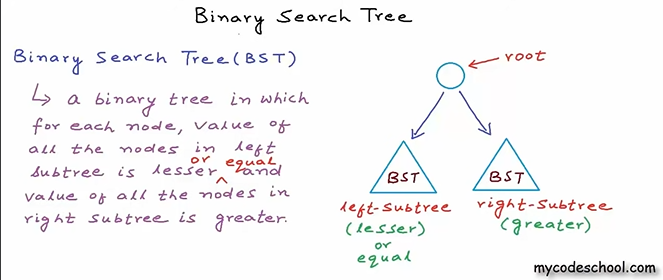 Binary Search Tree
Binary Search Tree (BST)
↳ a binary tree in which
for each node, value of
all the nodes in left
subtree is lesser or equal and
value of all the nodes in
right subtree is greater.
root
BST
BST
left-subtree
(lesser)
or
equal
right-subtree
(greater)
mycodeschool.com